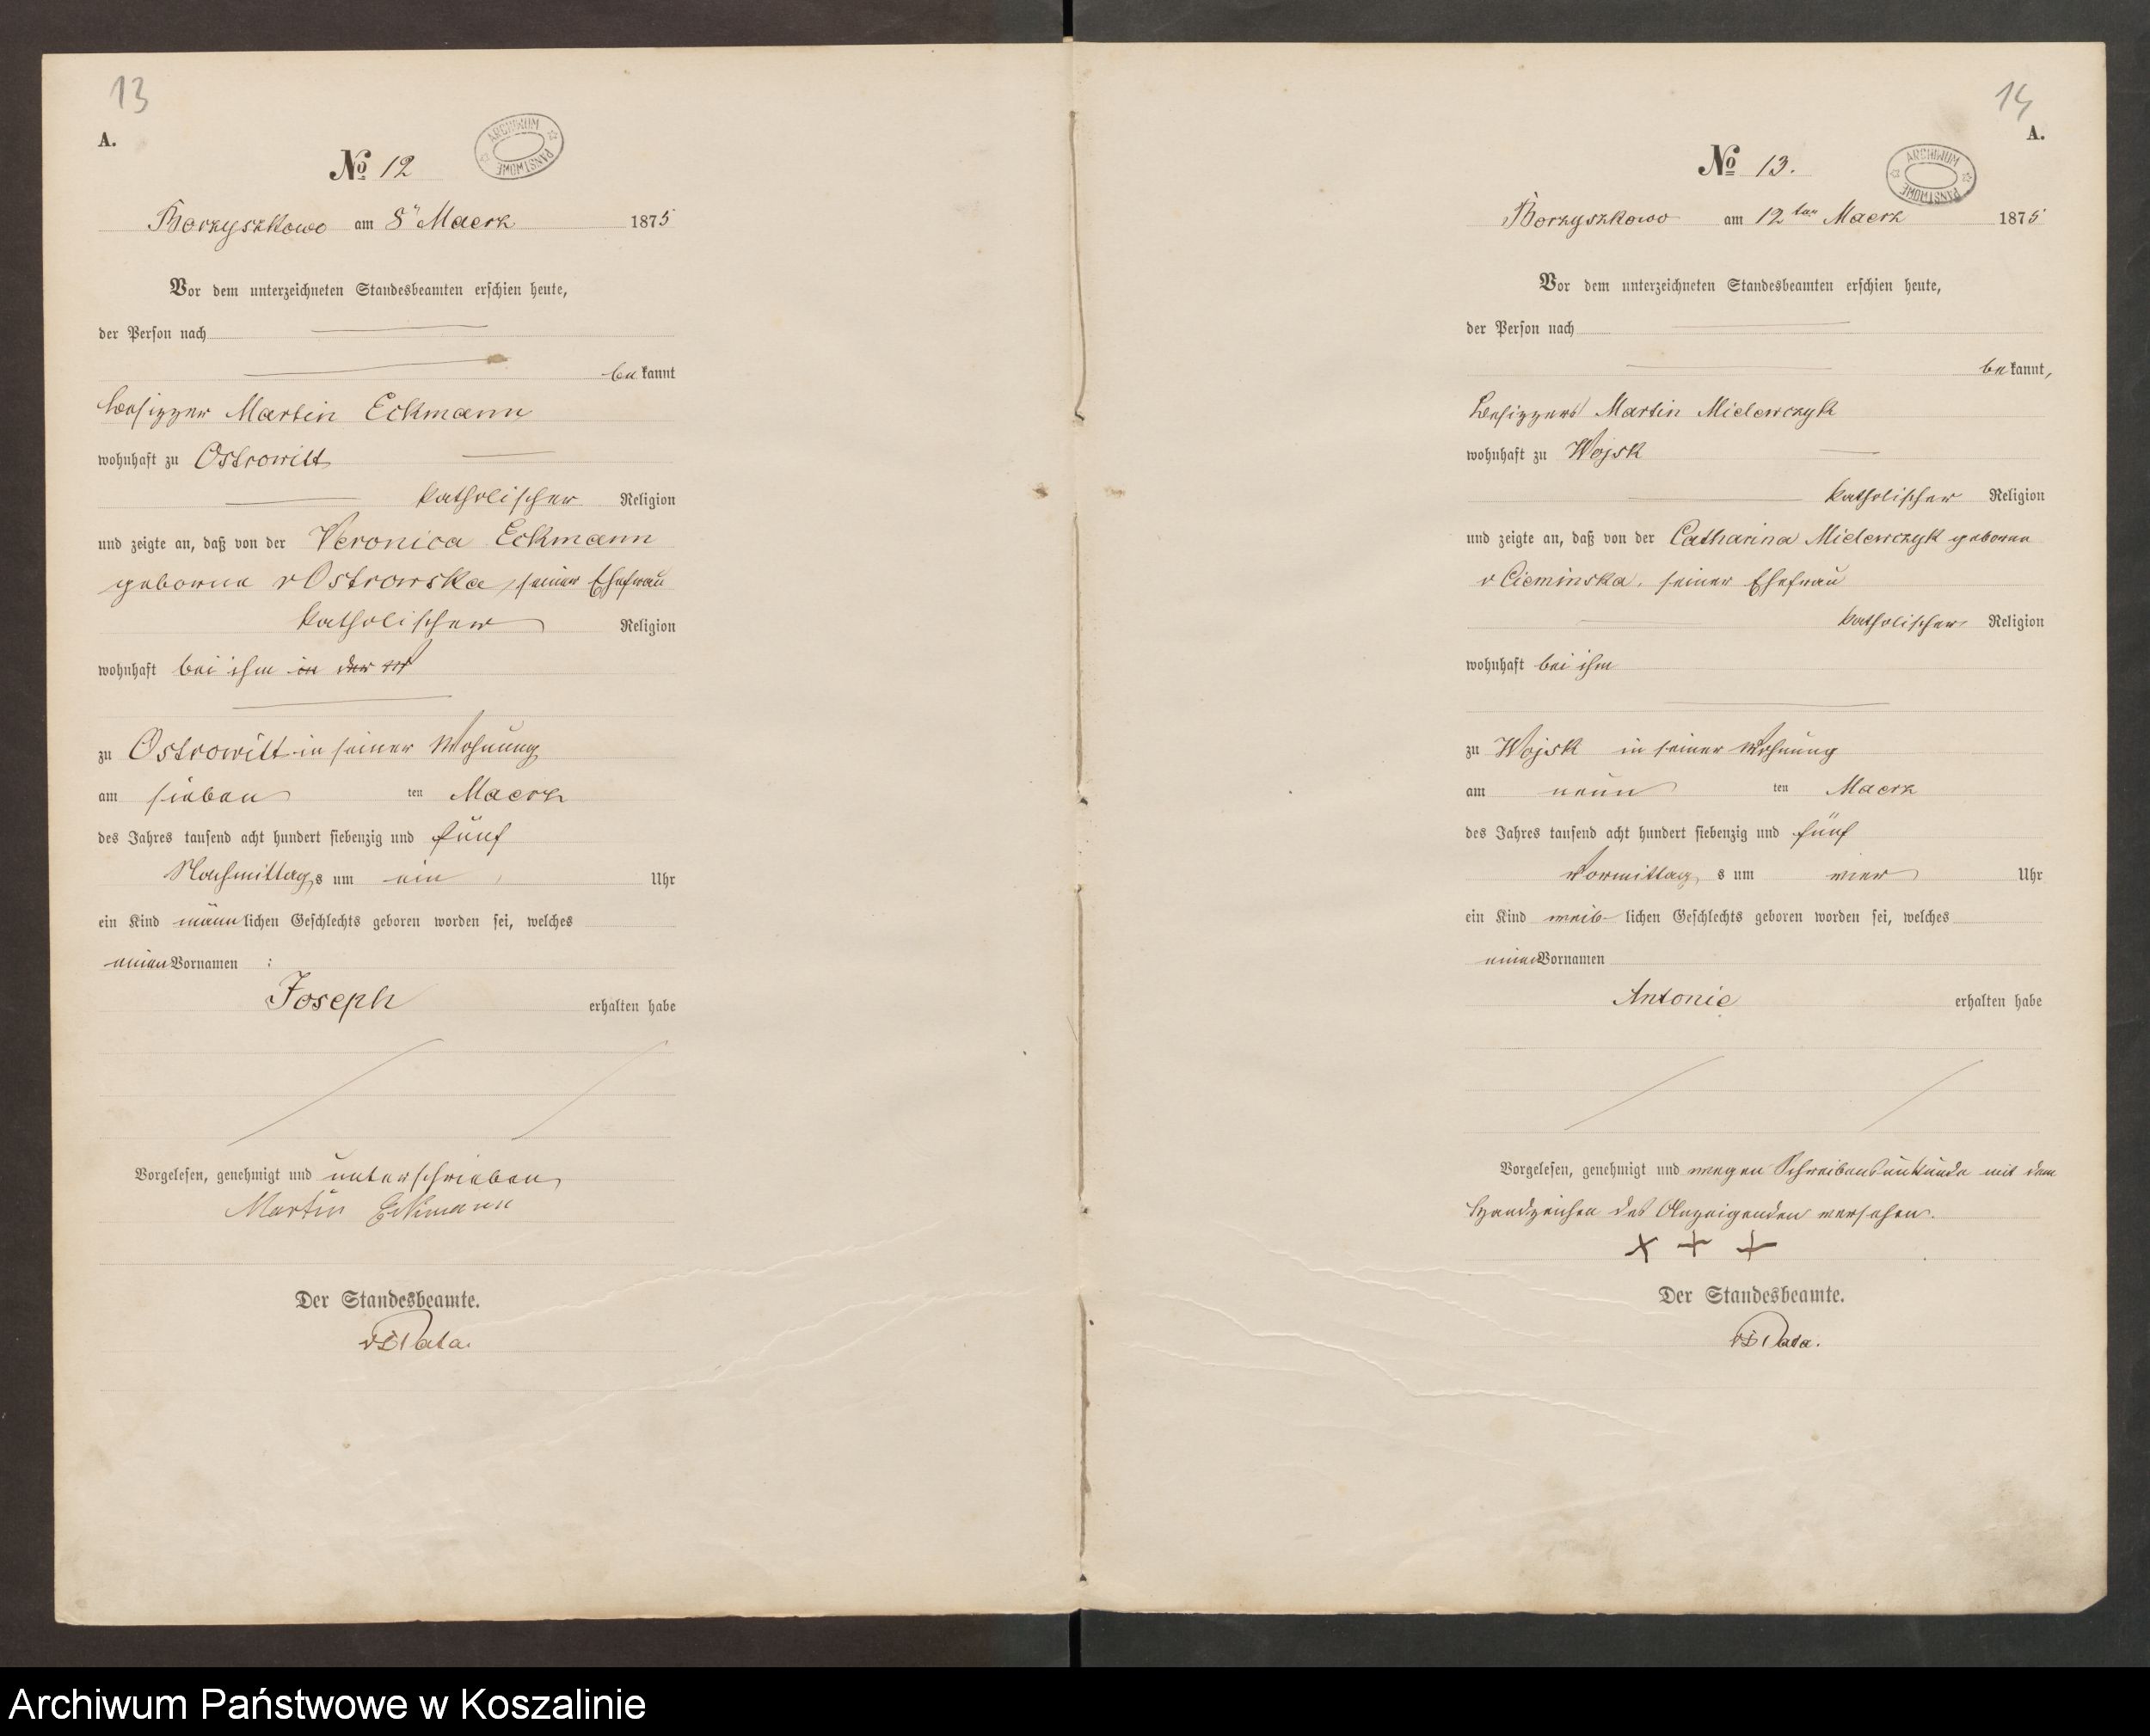 13
A.
ARCHIWUM PAŃSTWOWE
№ 12
Borzyszkowo am 8" Maerz 1875
Vor dem unterzeichneten Standesbeamten erschien heute,
der Person nach
bekannt
Besitzer Martin Eckmann
wohnhaft zu Ostrowitt
katholischer Religion
und zeigte an, daß von der Veronica Eckmann
geborne v Ostrowska, seiner Ehefrau
katholischer Religion
wohnhaft bei ihm in der W
zu Ostrowitt in seiner Wohnung
am sieben ten Maerz
des Jahres tausend acht hundert siebenzig und fünf
Nachmittags um ein Uhr
ein Kind männlichen Geschlechts geboren worden sei, welches
einen Vornamen :
Joseph erhalten habe
Vorgelesen, genehmigt und unterschrieben
Martin Eckmann
Der Standesbeamte.
14
A.
ARCHIWUM PAŃSTWOWE
№ 13.
Borzyszkowo am 12ten Maerz 1875
Vor dem unterzeichneten Standesbeamten erschien heute,
der Person nach
bekannt,
Martin Mielewczyk
wohnhaft zu Wojsk
katholischer Religion
und zeigte an, daß von der Catharina Mielewczyk geborne
v Cieminska, seiner Ehefrau
katholischer Religion
wohnhaft bei ihm
zu Wojsk in seiner Wohnung
am neun ten Maerz
des Jahres tausend acht hundert siebenzig und fünf
Vormittags um vier Uhr
ein Kind weiblichen Geschlechts geboren worden sei, welches
einen Vornamen
Antonie erhalten habe
Vorgelesen, genehmigt und wegen Schreibensunkunde mit dem
Handzeichen des Anzeigenden versehen.
+ + +
Der Standesbeamte.
Archiwum Państwowe w Koszalinie